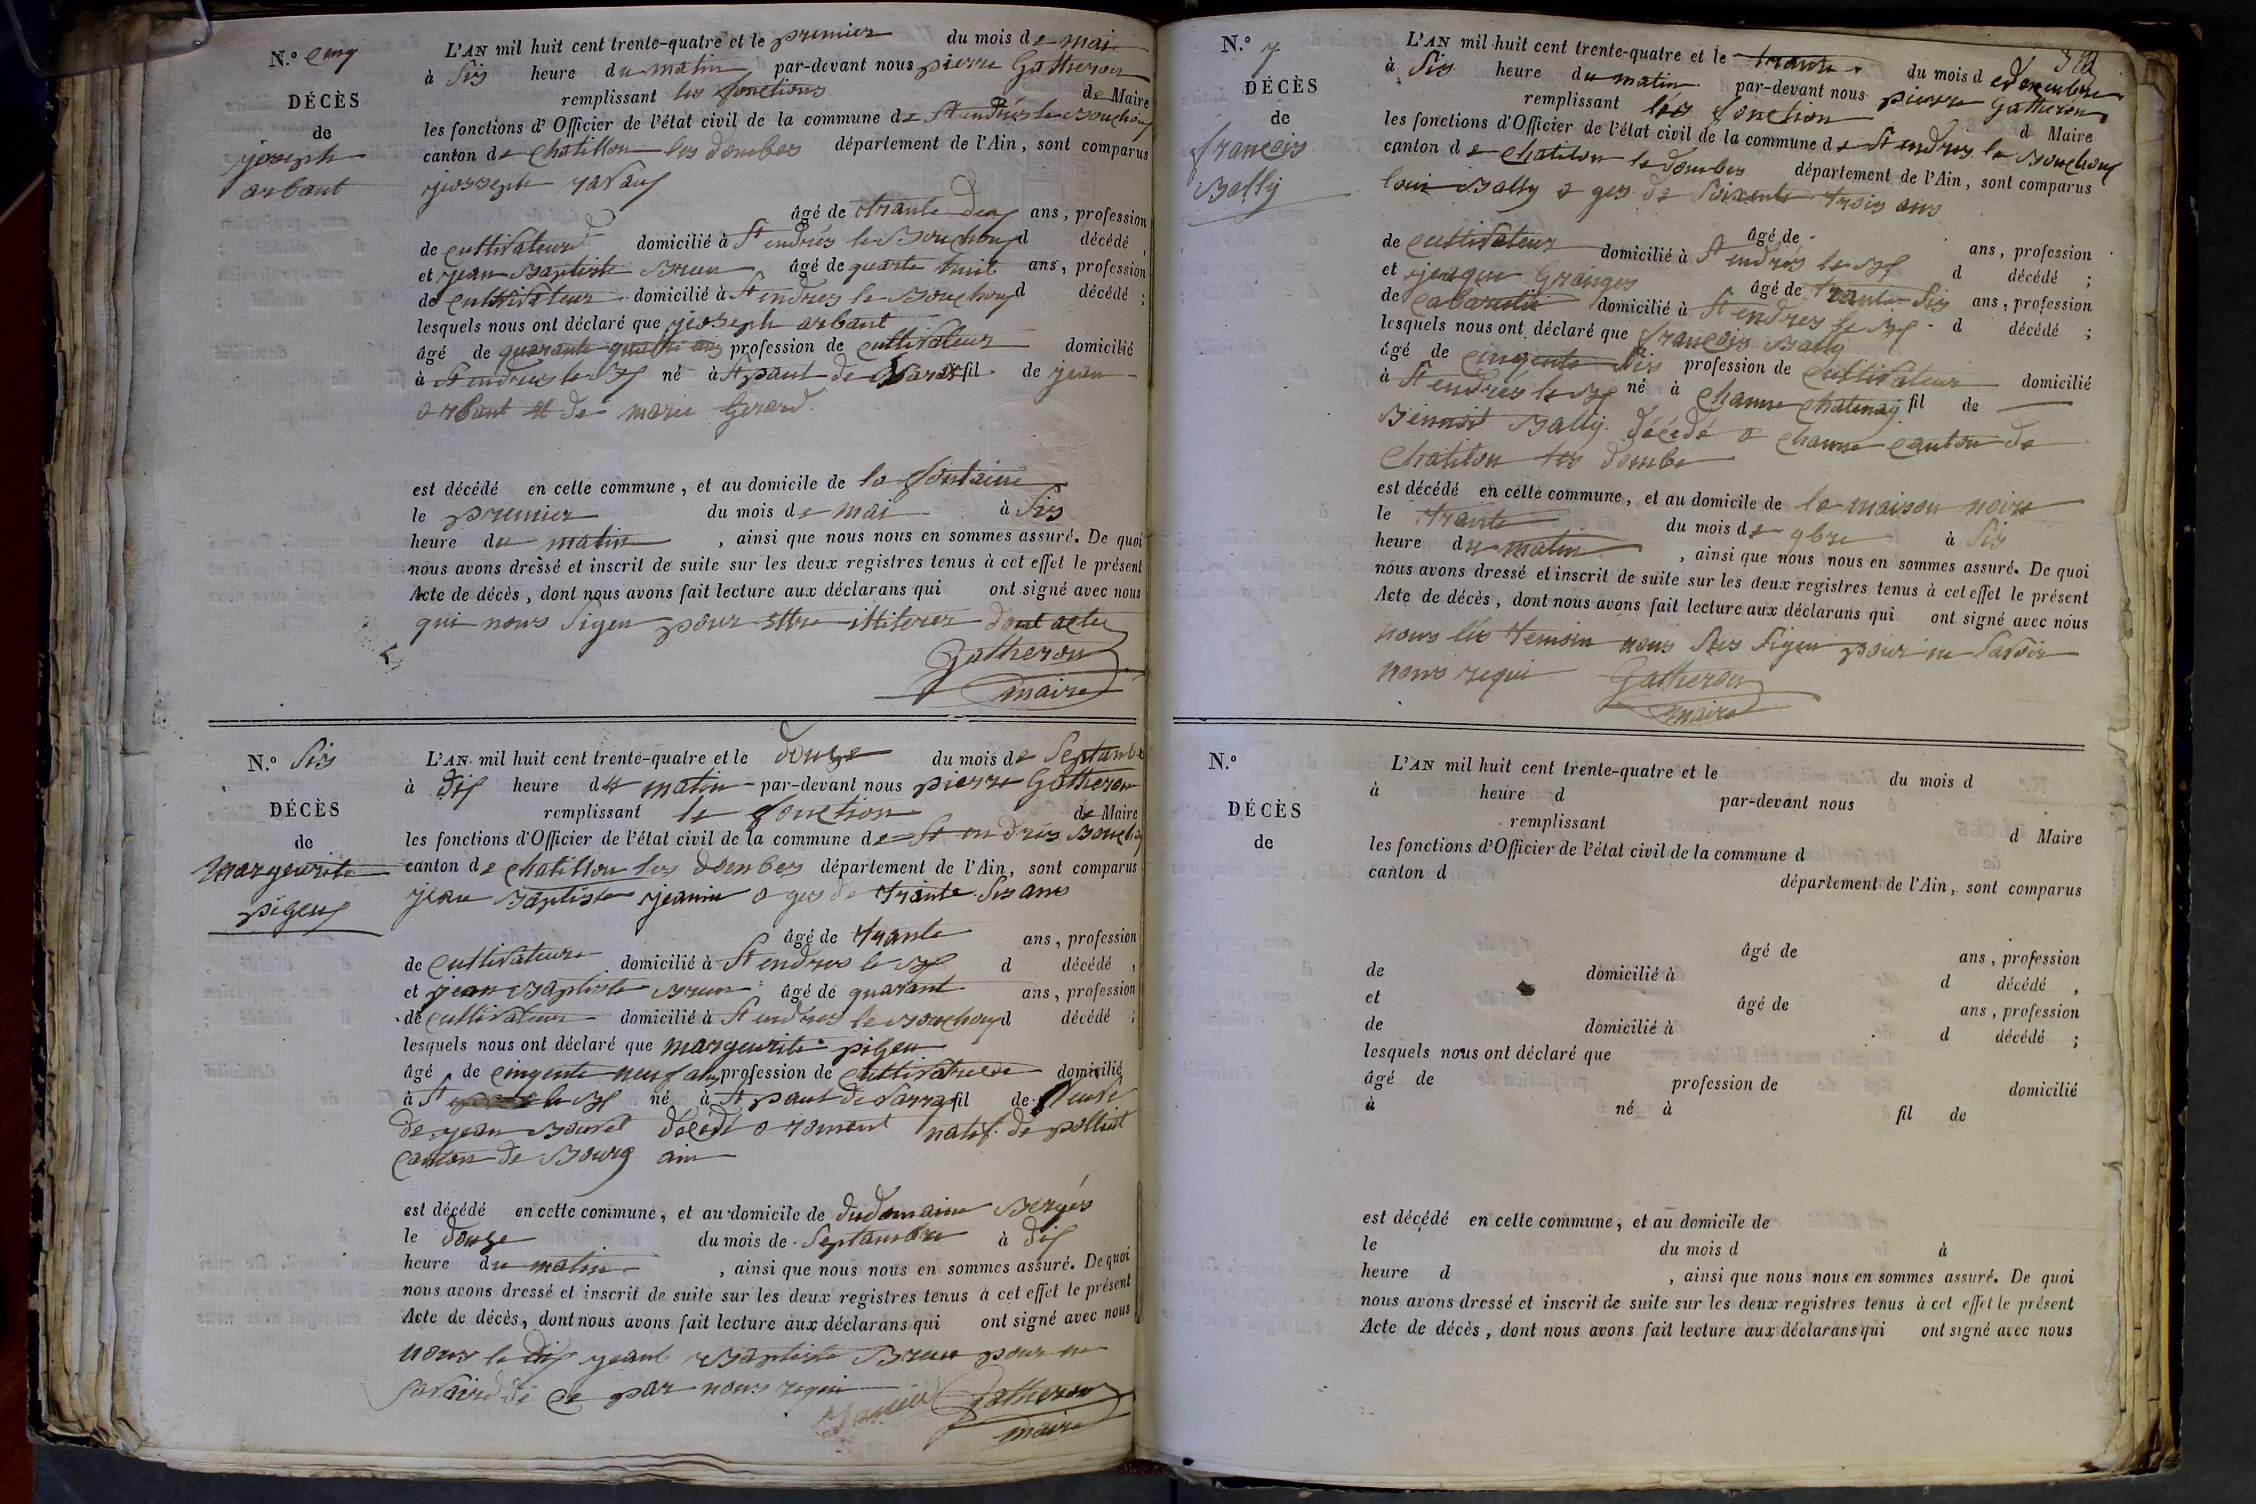 N.º cinq
DÉCÈS
de
joseph
arbant
L'AN mil huit cent trente-quatre et le premier du mois de mai
à Sis heure du matin par-devant nous pierre Gatheron
remplissant les fonctions de Maire
les fonctions d'Officier de l'état civil de la commune de St endrés le Bouchoux
canton de Chatillon les dombes département de l'Ain, sont comparus
josseph
âgé de trante deux ans, profession
de cultivateur domicilié à St endrés le Bouchoux d décédé,
et jean Baptiste Brun âgé de quarte huit ans, profession
de cultivateur domicilié à St endres le Bouchoux d décédé ;
lesquels nous ont déclaré que joseph arbant
âgé de quarante quatre ans profession de cultivateur domicilié
à St endres le Bx né à St paul de Varax fil de jean
arbant et de marie Gerard
est décédé en cette commune, et au domicile de la fontaine
le premier du mois de mai à Sis
heure du matin, ainsi que nous nous en sommes assuré. De quoi
nous avons dressé et inscrit de suite sur les deux registres tenus à cet effet le présent
Acte de décès, dont nous avons fait lecture aux déclarans qui ont signé avec nous
qui nons Signe pour ettre illiterer dont acte
Gatheron
maire
N.º Sis
DÉCÈS
de
Margeurite
pigeux
L'AN mil huit cent trente-quatre et le douze du mois de Septambre
à dix heure du matin par-devant nous pierre Gatheron
remplissant le fonction de Maire
les fonctions d'Officier de l'état civil de la commune de St endrés Bouchoux
canton de Chatillon les dombes département de l'Ain, sont comparus
jean Baptiste jeanin a ges de trante Sis ans
âgé de trante ans, profession
de cultivateur domicilié à St endres le Bx d décédé,
et jean Baptiste Brun âgé de quarant ans, profession
de cultivateur domicilié à St endres le Bouchoux d décédé ;
lesquels nous ont déclaré que margeurite pigeu
âgé de cinqente neuf ans profession de cultivatrice domicilié
à St le Bx né à St paul de Varax fil de Veuve
de jean Bouvet décédé a romant natif de polliat
Canton de Bourg ain
est décédé en cette commune, et au domicile de dudomaine Bergés
le douze du mois de Septambre à dix
heure du matin, ainsi que nous nous en sommes assuré. De quoi
nous avons dressé et inscrit de suite sur les deux registres tenus à cet effet le présent
Acte de décès, dont nous avons fait lecture aux déclarans qui ont signé avec nous
nons le dix jeant Baptiste Brun pour ne
savoir de ce par nous requi
Gatheron
maire
N.º 7
DÉCÈS
de
francois
Bally
L'AN mil huit cent trente-quatre et le trante du mois d
à Sis heure du matin par-devant nous pierre Gatheron
remplissant lés fonction d Maire
les fonctions d'Officier de l'état civil de la commune de St endres le Bouchoux
canton de Chatilon le dombes département de l'Ain, sont comparus
loui Bally a ges de Soixente trois ans
âgé de ans, profession
de cultivateur domicilié à St endrés le Bx d décédé ;
et jacque Granges âgé de trante Sis ans, profession
de cabaretié domicilié à St endres le Bx d décédé ;
lesquels nous ont déclaré que francois Bally
âgé de cinqente Sis profession de cultivateur domicilié
à St endrés le Bx né à Channe Chatenay fil de
Benoit Bally décédé a Channe canton de
Chatilon les dombe
est décédé en cette commune, et au domicile de la maison noire
le trante du mois de 9bre à Sis
heure du matin, ainsi que nous nous en sommes assuré. De quoi
nous avons dressé et inscrit de suite sur les deux registres tenus à cet effet le présent
Acte de décès, dont nous avons fait lecture aux déclarans qui ont signé avec nous
nous lés temoin nons Signe pour ne Savoir
nous requi Gatheron
maire
N.º
DÉCÈS
de
L'AN mil huit cent trente-quatre et le du mois d
à heure d par-devant nous
remplissant d Maire
les fonctions d'Officier de l'état civil de la commune d
canton d département de l'Ain, sont comparus
âgé de ans, profession
de domicilié à d décédé,
et âgé de ans, profession
de domicilié à d décédé ;
lesquels nous ont déclaré que
âgé de profession de domicilié
à né à fil de
est décédé en cette commune, et au domicile de
le du mois d à
heure d, ainsi que nous nous en sommes assuré. De quoi
nous avons dressé et inscrit de suite sur les deux registres tenus à cet effet le présent
Acte de décès, dont nous avons fait lecture aux déclarans qui ont signé avec nous